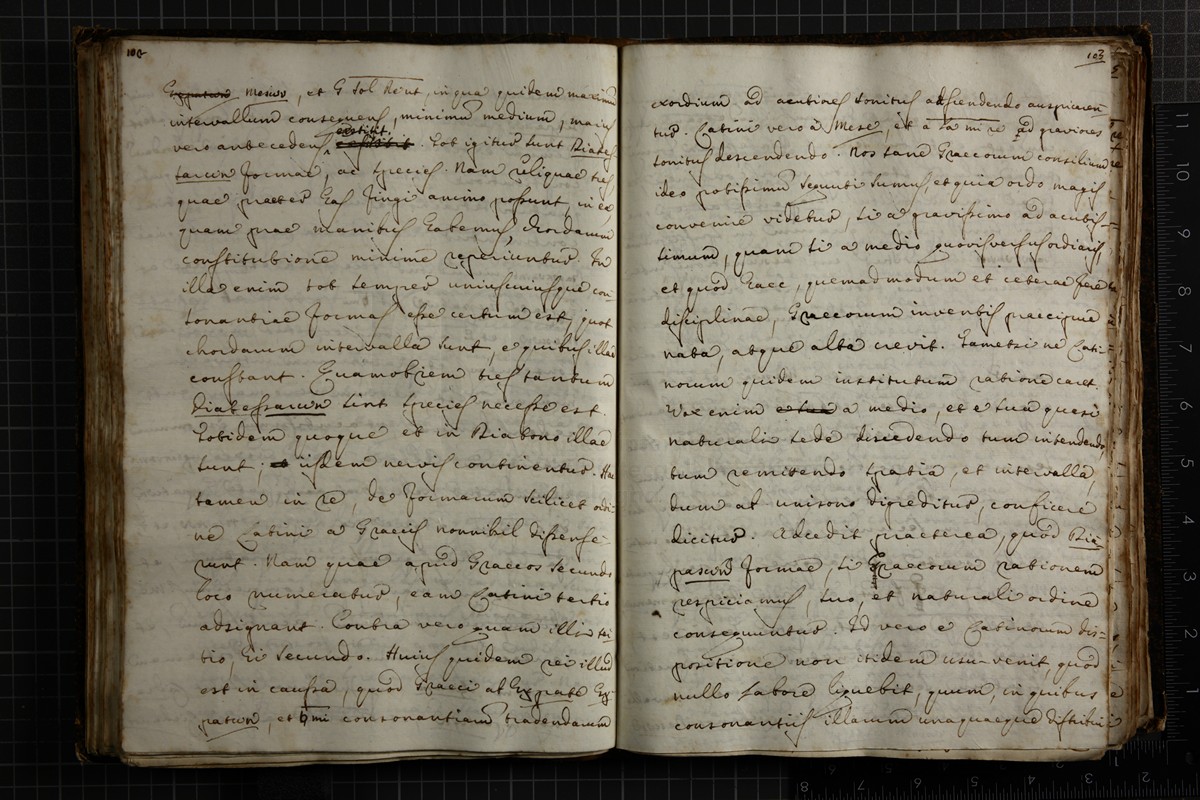 102
Hypaton meson, et G Sol Reut, in qua quidem maximum
intervallum consequens, minimum medium, maius
vero antecedens existit. Tot igitur sunt Diates
saron formae, ac species. Nam reliquae tres
quae praeter eas fingi animo possunt, in ea
quam prae manibus habemus, chordarum
constitutione minime reperiuntur. In
illa enim tot semper uniuscuiusque con
sonantiae formas esse certum est, quot
chordarum intervalla sunt, e quibus illae
constant. Quamobrem tres tantum
diatessaron sint species necesse est.
Totidem quoque et in Ditono illae
sunt; iisdem nervis continentur. Hac
tamen in re, de formarum scilicet ordi
ne Latini a Graecis nonnihil dissense-
runt. Nam quae apud Graecos secundo
loco numeratur, eam Latini tertio
adsignant. Contra vero quam illi ter
tio, hi secundo. Huius quidem rei illud
est in caussa, quod Graeci ab Hypate Hy-
paton, et ♮ mi consonantiam tradendarum
103
exordium ad acutiores sonitus adscendendo auspicien
tur. Latini vero a Mese, et a la mi re ad graviores
sonitus descendendo. Nos sane Graecorum consilium
ideo potissimum sequuti sumus, et quia ordo magis
convenire videtur, si a gravissimo ad acutis-
simum, quam si a medio quovis versus ordiaris,
et quod haec, quemadmodum et ceterae fere
disciplinae, Graecorum inventis praecipue
nata, atque alta crevit. Tametsi ne Lati-
norum quidem institutum ratione caret.
Vox enim a medio, et e sua quasi
naturali sede discedendo tum intendendo,
tum remitendo spatia, et intervalla,
dum ab unisono digreditur, conficere
dicitur. Adcedit praeterea, quod Dia-
pason formae, si Graecorum rationem
respiciamus, suo, et naturali ordine
consequuntur. Id vero e Latinorum dis-
positione non itidem usu venit, quod
nullo labore liquebit, quum, in quibus
consonantiis illarum unaquaeque distribui